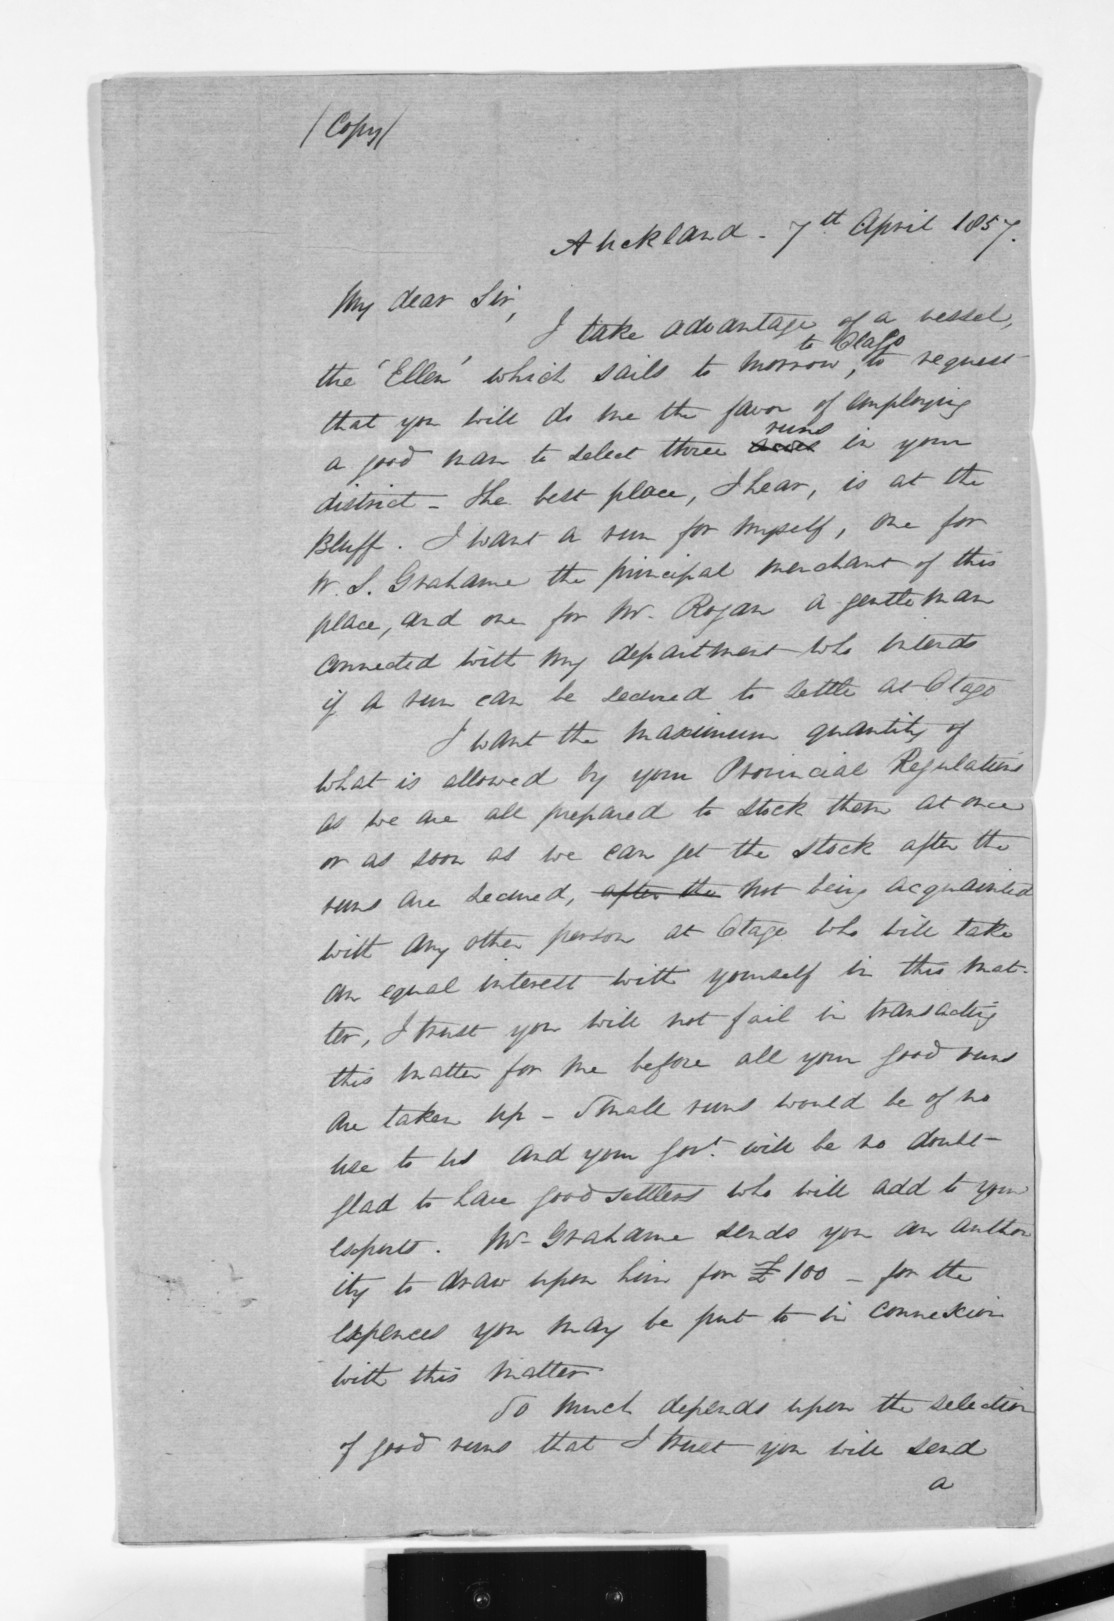 (Copy)
Auckland - 7th April 1857.
My dear Sir,
I take advantage of a vessel,
the 'Ellen' which sails to morrow, to Otago to request
that you will do me the favor of employing
a good man to select three runs in your
district - the best place, I hear, is at the
Bluff. I want a run for myself, one for
W. S. Grahame the principal merchant of this
place, and one for Mr. Rogan a gentleman
connected with my department who intends
if a run can be secured to settle at Otago
I want the maximum quantity of
what is allowed by your Provincial Regulations
as we are all prepared to stock them at once
or as soon as we can get the stock after the
runs are secured, after the not being acquainted
with any other person at Otago who will take
an equal interest with yourself in this mat-
ter, I trust you will not fail in transacting
this matter for me before all your good runs
are taken up - Small runs would be of no
use to us and your Govt. will be no doubt
glad to have good settlers who will add to your
exports. Mr Grahame sends you an author
ity to draw upon him for £100 - for the
expences you may be put to in connexion
with this matter
So much depends upon the selection
of good runs that I trust you will send
a